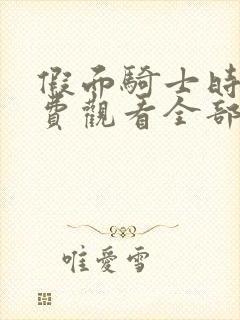 假面騎士時
費觀看全部
唯愛雪